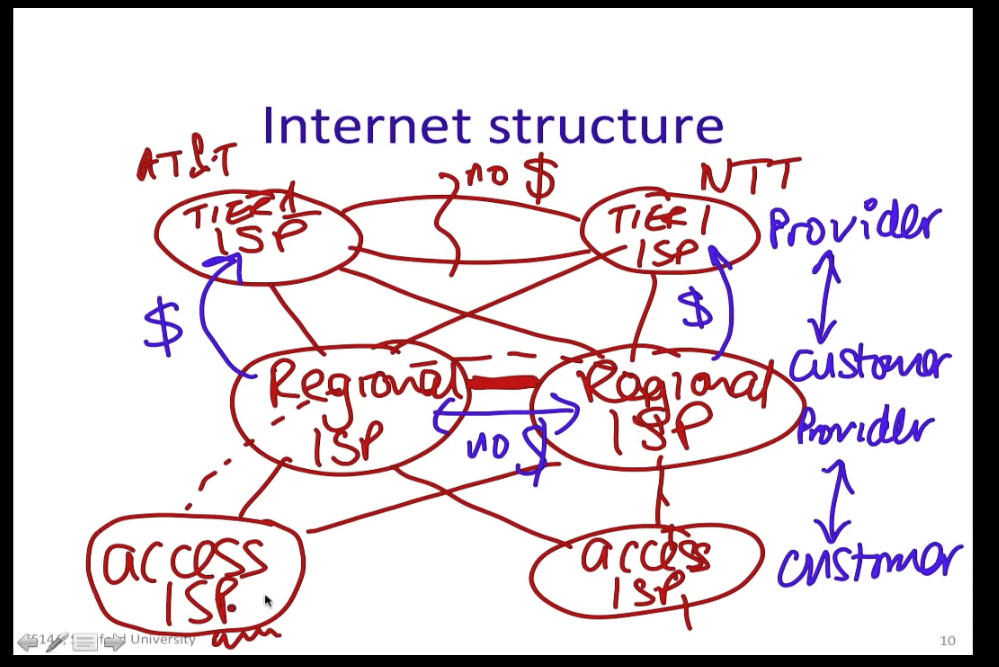 Internet structure
AT&T
no $
NTT
TIER 1
ISP
TIER 1
ISP
Provider
$
$
Customer
Regional
ISP
Regional
ISP
no $
Provider
access
ISP
access
ISP
Customer
University
10